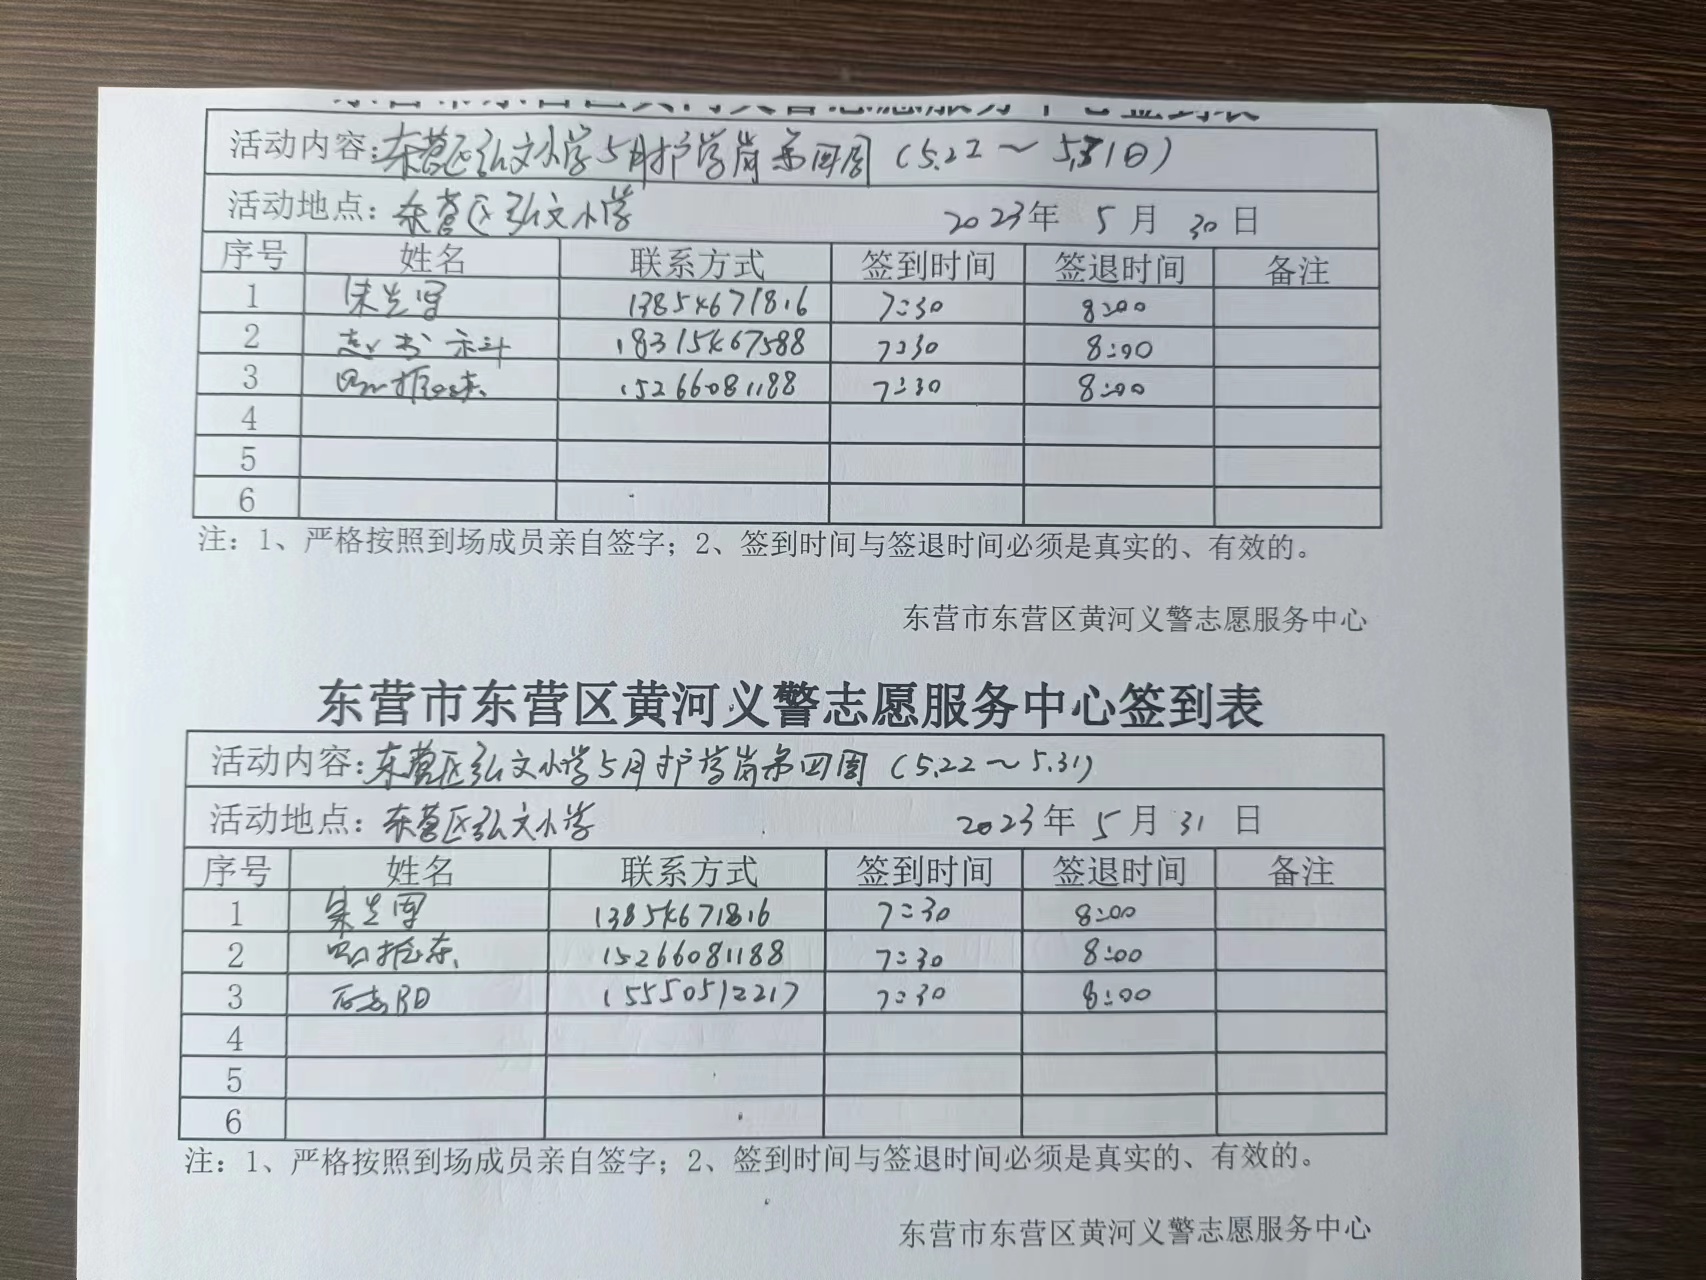 东营市东营区黄河义警志愿服务中心签到表
活动内容:东营区弘文小学5月护学岗第四周(5.22~5.31日)
活动地点:东营区弘文小学 2023年 5月 30日
序号 姓名 联系方式 签到时间 签退时间 备注
1 13854671816 7:30 8:00
2 18315467588 7:30 8:00
3 15266081188 7:30 8:00
4
5
6
注:1、严格按照到场成员亲自签字;2、签到时间与签退时间必须是真实的、有效的。
东营市东营区黄河义警志愿服务中心
东营市东营区黄河义警志愿服务中心签到表
活动内容:东营区弘文小学5月护学岗第四周(5.22~5.31)
活动地点:东营区弘文小学 2023年 5月 31日
序号 姓名 联系方式 签到时间 签退时间 备注
1 13854671816 7:30 8:00
2 15266081188 7:30 8:00
3 15550512217 7:30 8:00
4
5
6
注:1、严格按照到场成员亲自签字;2、签到时间与签退时间必须是真实的、有效的。
东营市东营区黄河义警志愿服务中心